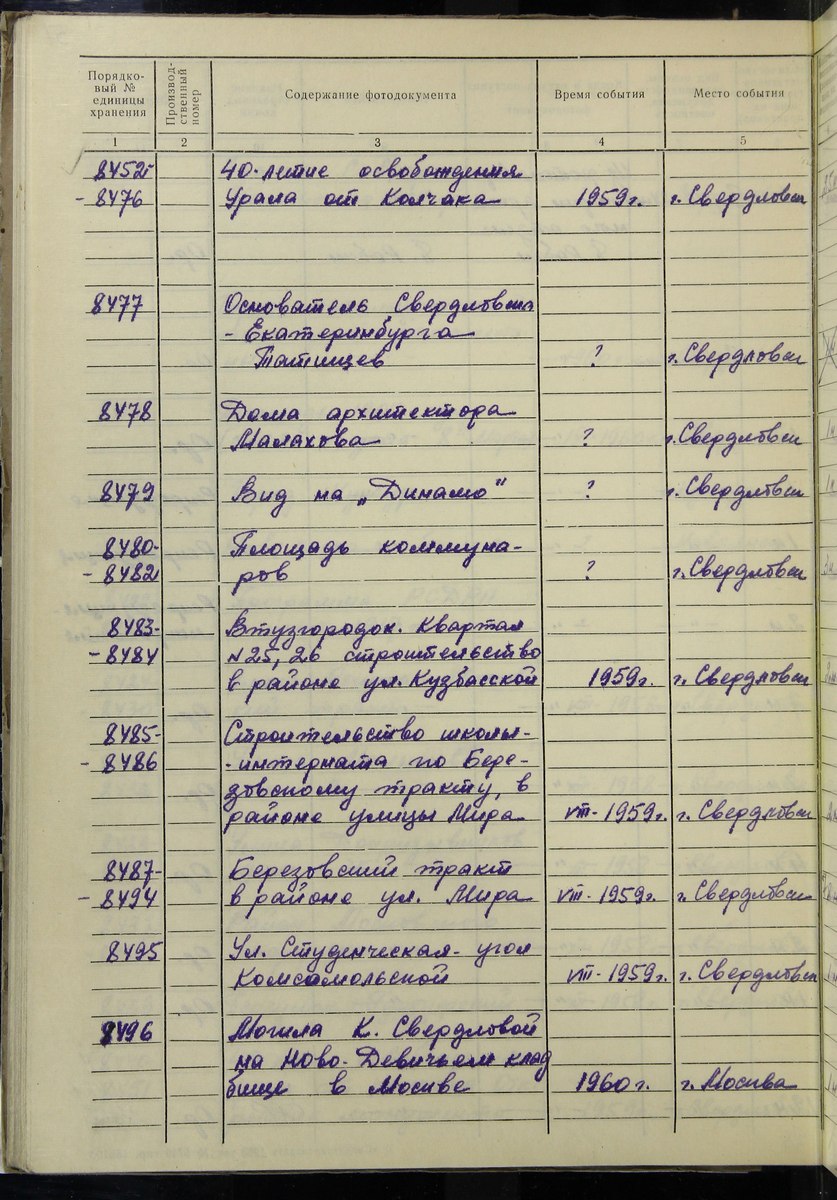 Порядко-
вый №
единицы
хранения
Производ-
ственный
номер
Содержание фотодокумента
Время события
Место события
1 2 3 4 5
8452- 40-летие освобождения
- 8476 Урала от Колчака 1959г. г. Свердловск
8477 Основатель Свердловска
- Екатеринбурга
Татищев ? г. Свердловск
8478 Дома архитектора
Малахова ? г. Свердловск
8479 Вид на „Динамо" ? г. Свердловск
8480- Площадь коммуна-
- 8482 ров ? г. Свердловск
8483- Втузгородок. Квартал
- 8484 №25, 26 строительство
в районе ул. Кузбасской 1959г. г. Свердловск
8485- Строительство школы-
- 8486 -интерната по Бере-
зовскому тракту, в
районе улицы Мира VIII-1959г. г. Свердловск
8487- Березовский тракт
- 8494 в районе ул. Мира VIII-1959г. г. Свердловск
8495 Ул. Студенческая- угол
Комсомольской VIII-1959г. г. Свердловск
8496 Могила К. Свердловой
на Ново-Девичьем клад
бище в Москве 1960г. г. Москва